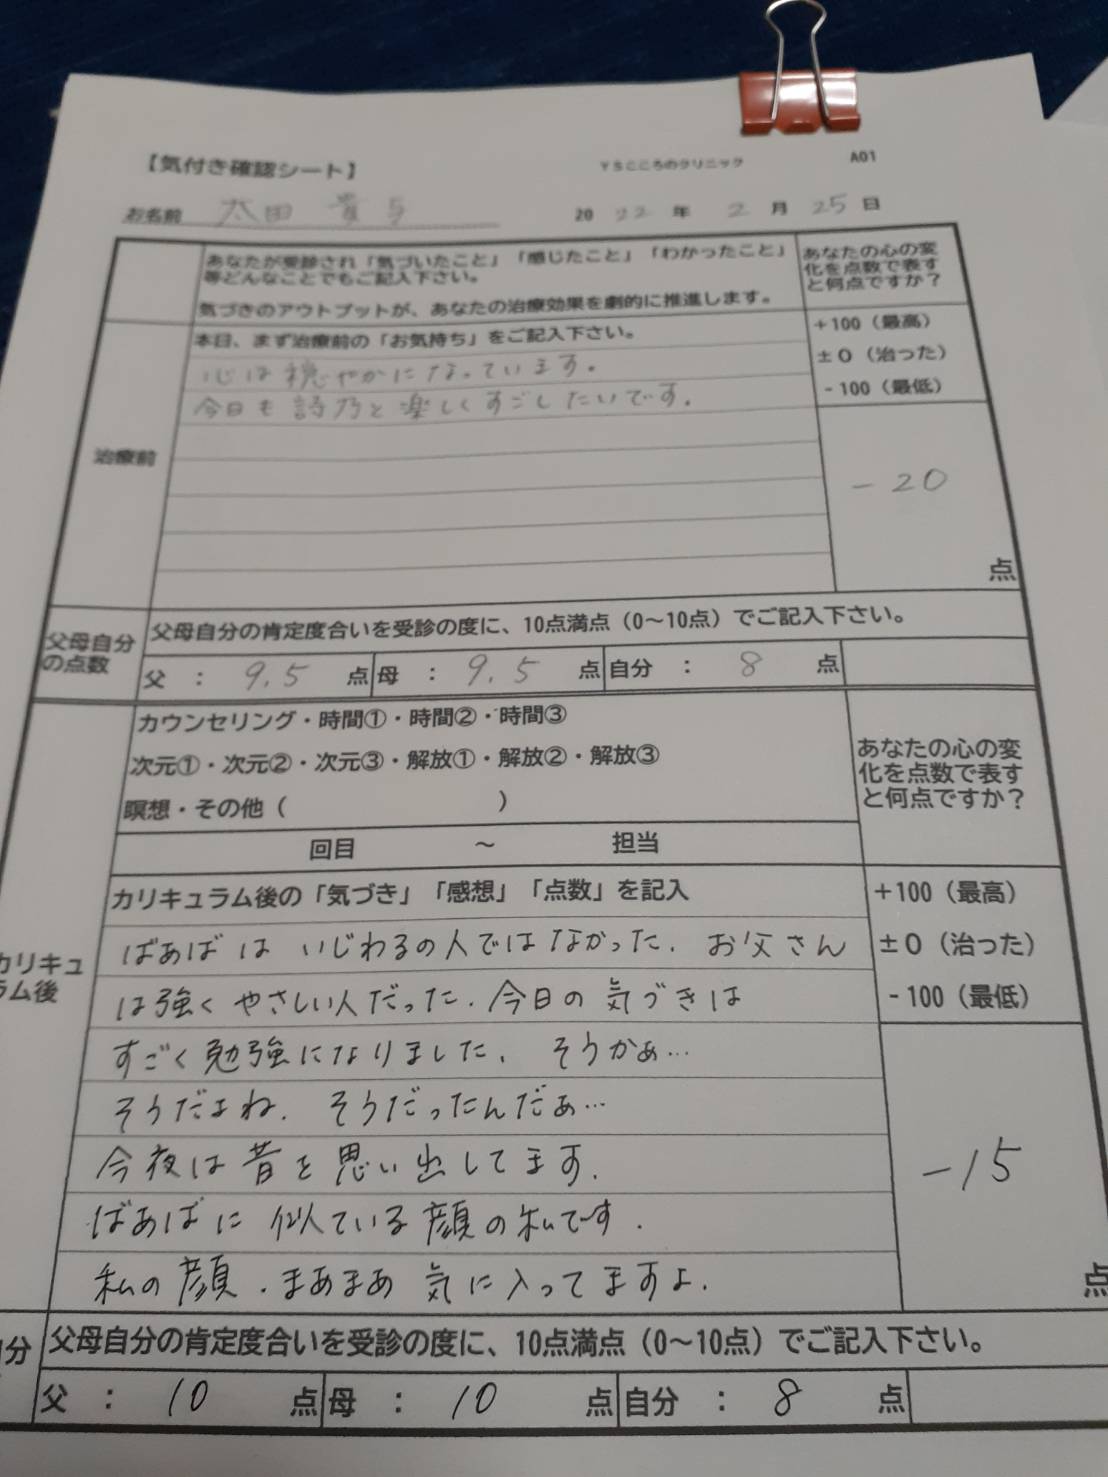 【気付き確認シート】
YSこころのクリニック
A01
お名前 太田
20 22 年 2 月 25 日
あなたが受診され「気づいたこと」「感じたこと」「わかったこと」
等どんなことでもご記入下さい。
気づきのアウトプットが、あなたの治療効果を劇的に推進します。
あなたの心の変
化を点数で表す
と何点ですか？
治療前
本日、まず治療前の「お気持ち」をご記入下さい。
心は穏やかになっています。
今日も詩乃と楽しくすごしたいです。
+100（最高）
±0（治った）
-100（最低）
-20
点
父母自分
の点数
父母自分の肯定度合いを受診の度に、10点満点（0～10点）でご記入下さい。
父 : 9.5 点 母 : 9.5 点 自分 : 8 点
カウンセリング・時間①・時間②・時間③
次元①・次元②・次元③・解放①・解放②・解放③
瞑想・その他（ ）
回目 ～ 担当
あなたの心の変
化を点数で表す
と何点ですか？
カリキュ
ラム後
カリキュラム後の「気づき」「感想」「点数」を記入
ばあばは いじわるの人ではなかった. お父さん
は強くやさしい人だった. 今日の気づきは
すごく勉強になりました. そうかぁ…
そうだよね. そうだったんだぁ…
今夜は昔を思い出してます.
ばあばに似ている顔の私です.
私の顔. まあまあ気に入ってますよ.
+100（最高）
±0（治った）
-100（最低）
-15
点
自分
父母自分の肯定度合いを受診の度に、10点満点（0～10点）でご記入下さい。
父 : 10 点 母 : 10 点 自分 : 8 点